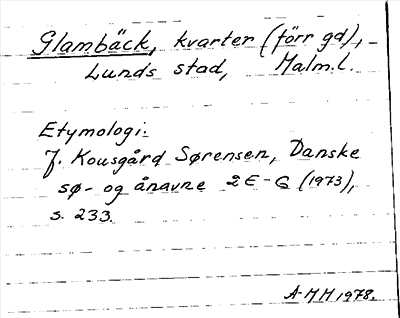 Glambäck, kvarter (förr gd),
Lunds stad, Malm.l.
Etymologi:
J. Kousgård Sørensen, Danske
sø- og ånavne 2 E-G (1973),
s. 233.
A-MH 1978.